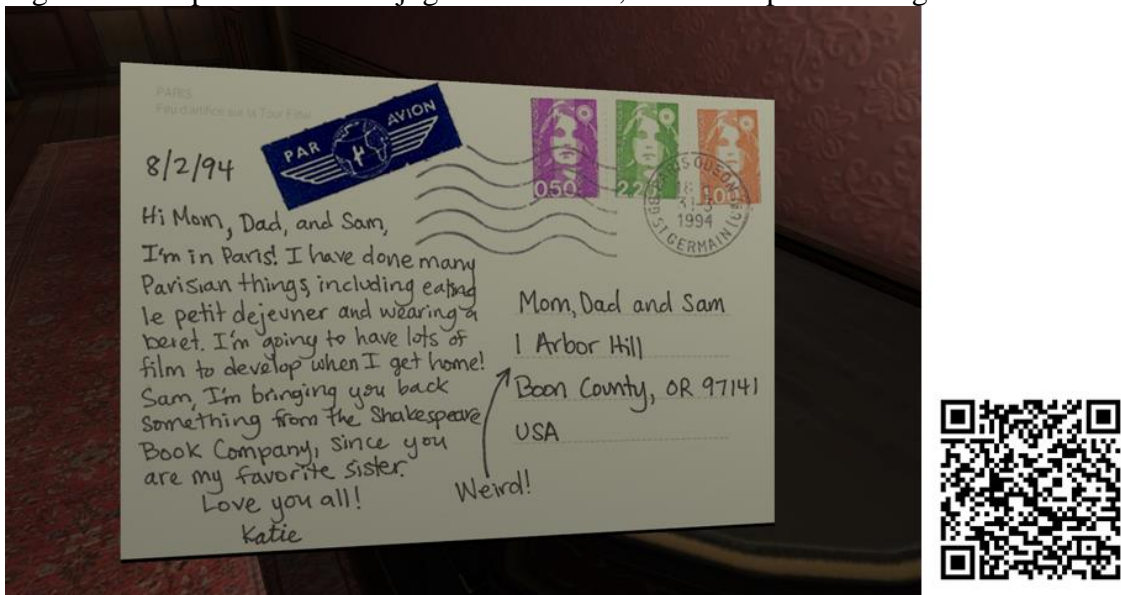 PARIS
Feu d'artifice sur la Tour Eiffel
PAR AVION
8/2/94
Hi Mom, Dad, and Sam,
I'm in Paris! I have done many
Parisian things, including eating
le petit dejeuner and wearing a
beret. I'm going to have lots of
film to develop when I get home!
Sam, I'm bringing you back
something from the Shakespeare
Book Company, since you
are my favorite sister.
Love you all!
Katie
0,50
PARIS ODEON
1994
ST GERMAIN
Mom, Dad and Sam
1 Arbor Hill
Boon County, OR 97141
USA
Weird!